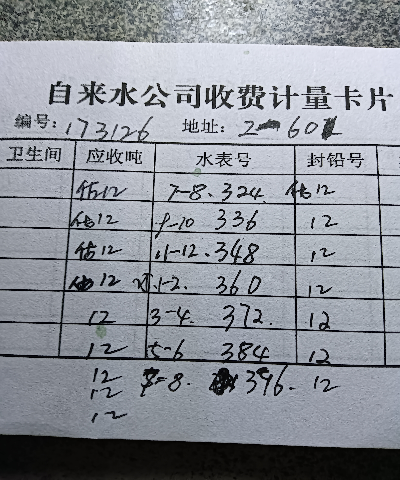 自来水公司收费计量卡片
编号:173126 地址: 2-601
卫生间 应收吨 水表号 封铅号
估12 7-8. 324. 估12
估12 9-10 336 12
估12 11-12. 348 12
估12 1-2. 360 12
12 3-4. 372. 12
12 5-6 384 12
12 7-8. 396. 12
12
12